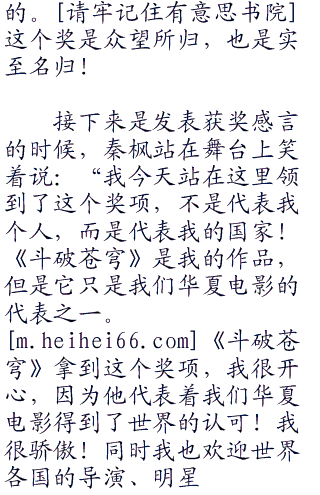 的。[请牢记住有意思书院]
这个奖是众望所归，也是实
至名归！
接下来是发表获奖感言
的时候，秦枫站在舞台上笑
着说：“我今天站在这里领
到了这个奖项，不是代表我
个人，而是代表我的国家！
《斗破苍穹》是我的作品，
但是它只是我们华夏电影的
代表之一。
[m.heihei66.com]《斗破苍
穹》拿到这个奖项，我很开
心，因为他代表着我们华夏
电影得到了世界的认可！我
很骄傲！同时我也欢迎世界
各国的导演、明星